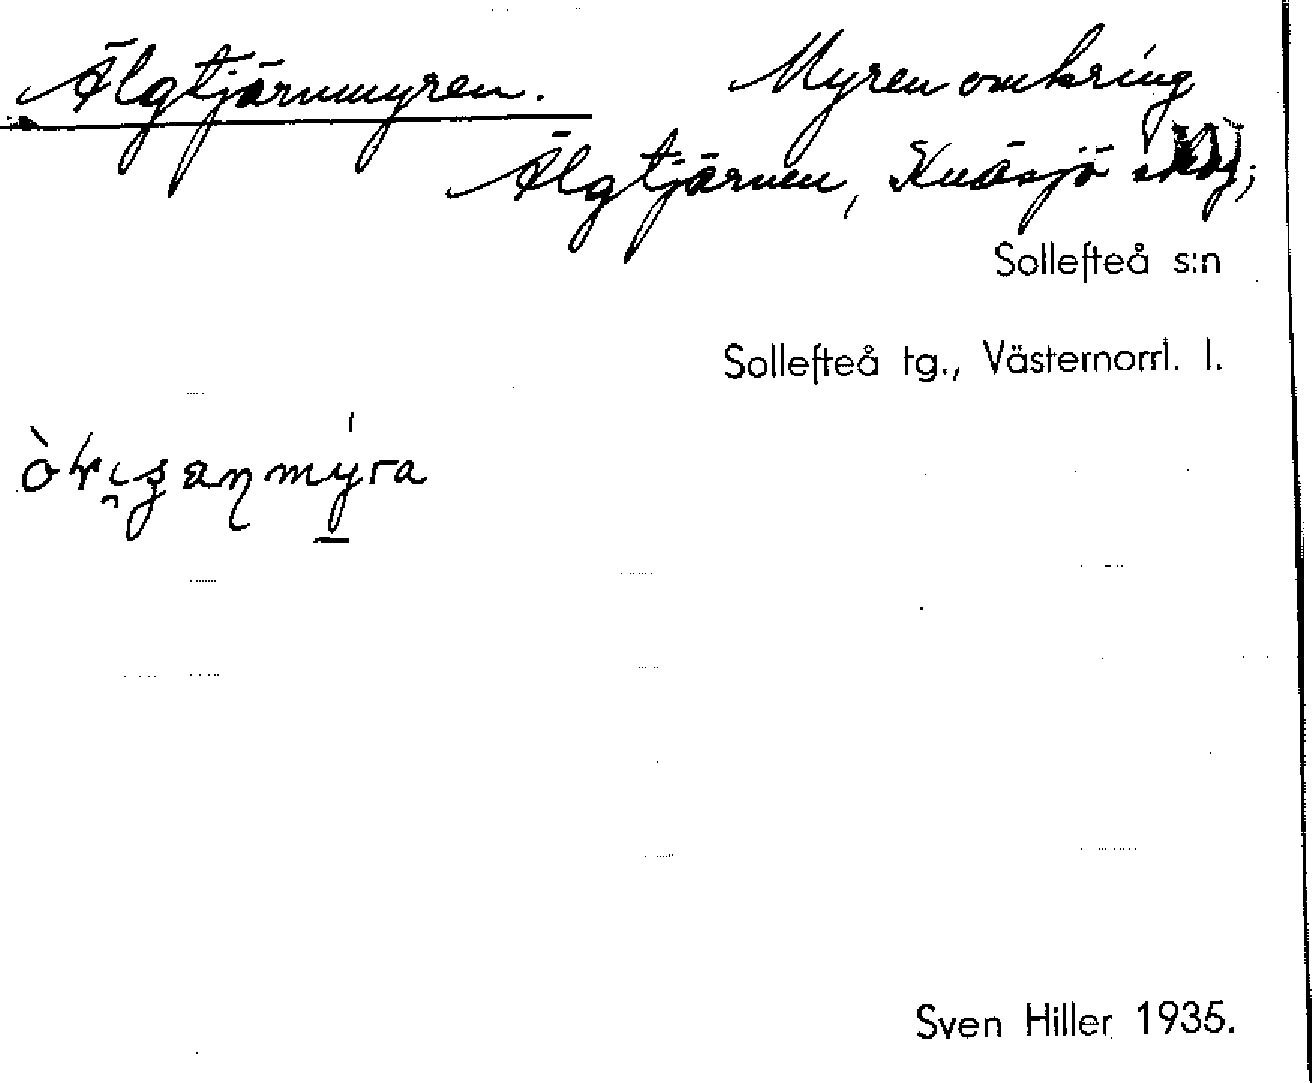 Älgtjärnmyren. Myren omkring
Älgtjärnen, Knäsjö skog;
Sollefteå s:n
Sollefteå tg., Västernorrl. l.
Sven Hiller 1935.